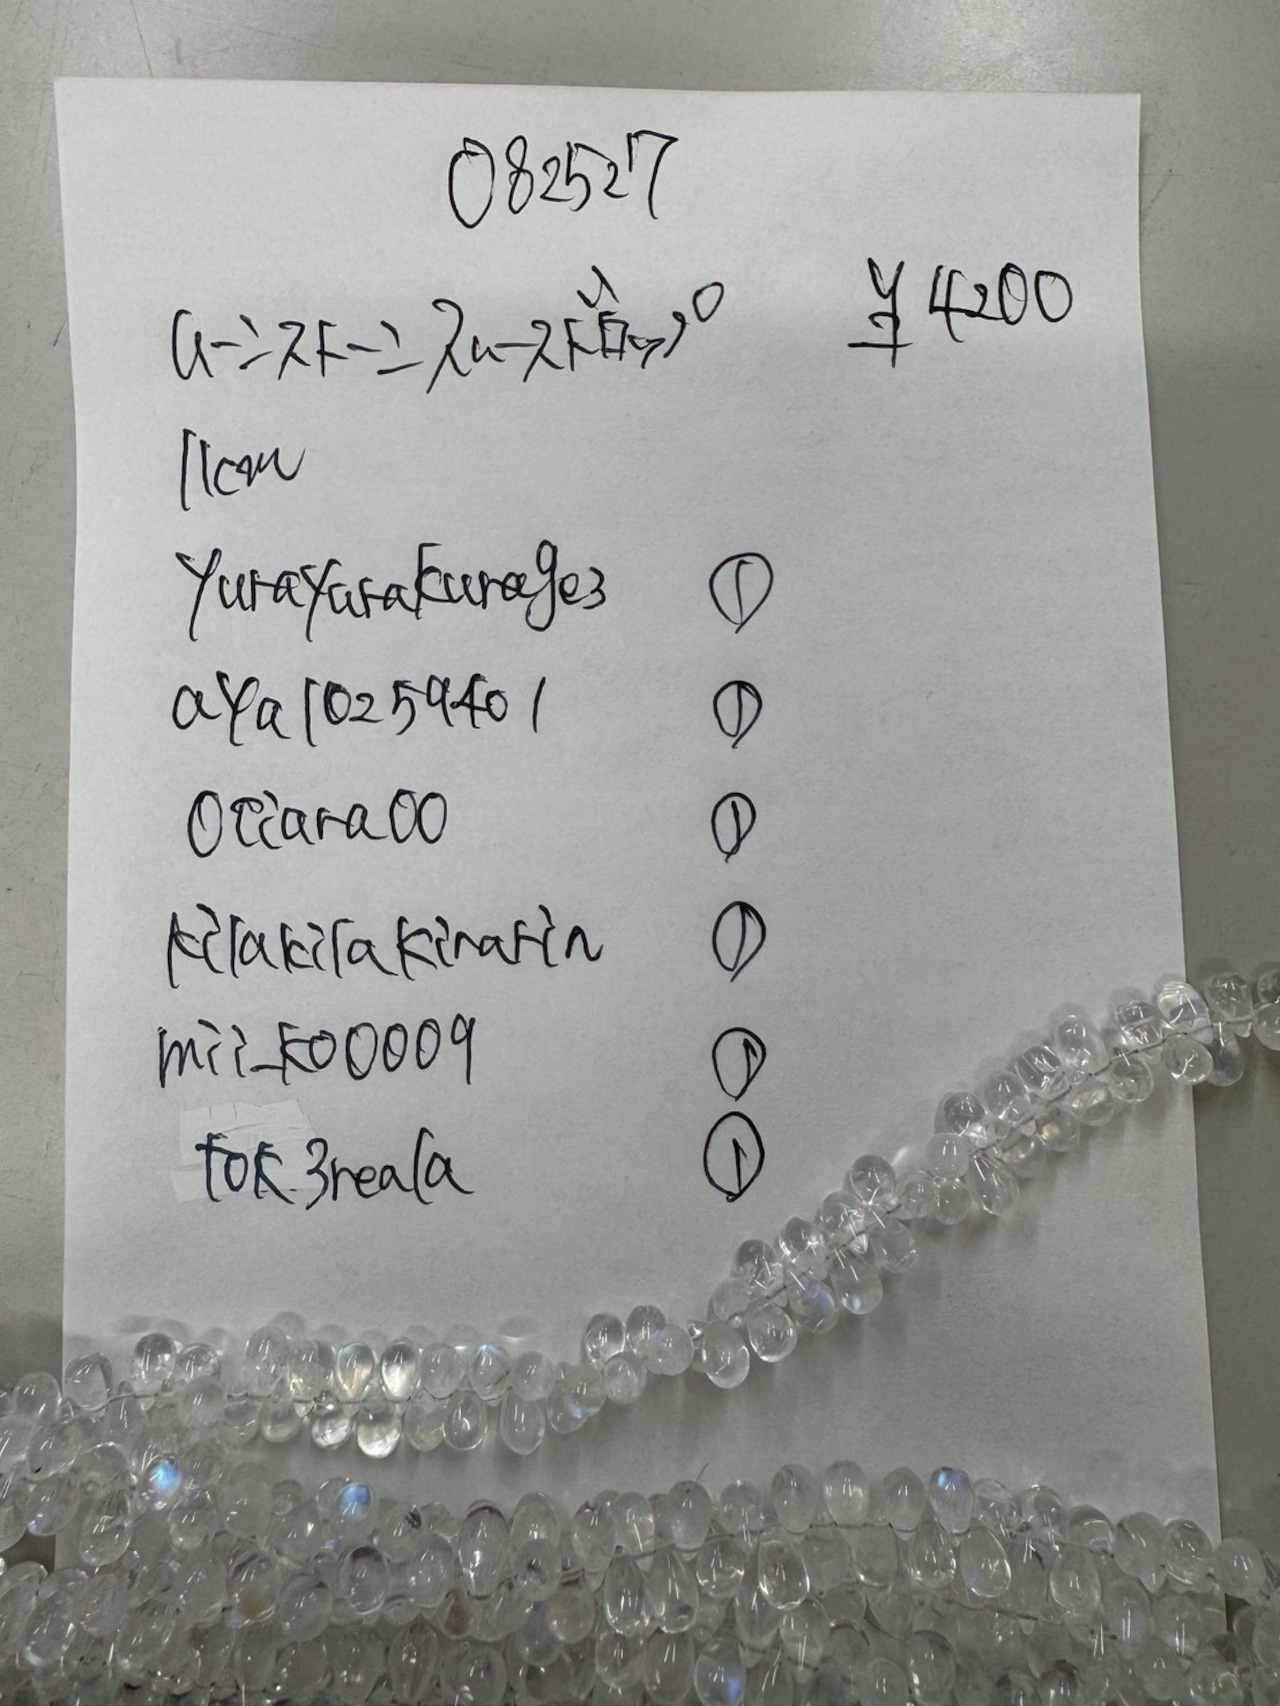 082527
ムーンストーンスムースドロップ ¥4200
11cm
yurayurakurage3
aya10259401
0tiara00
kilakilakirarin
mii_k00009
tok.3reala